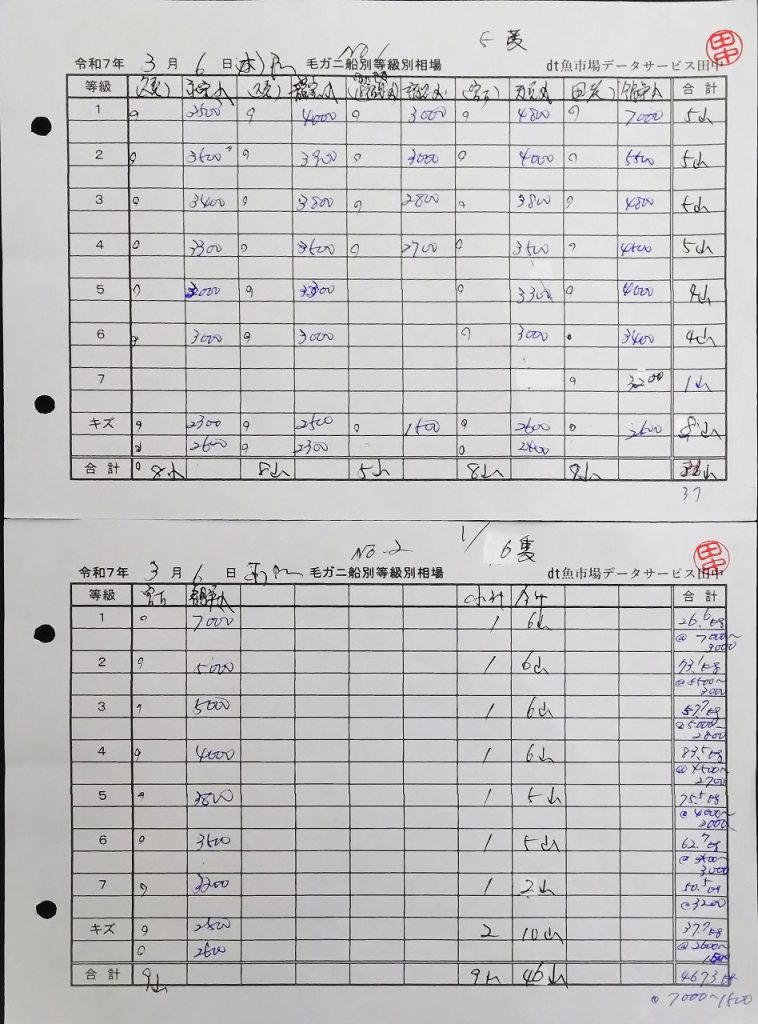 No 1 5隻
令和7年 3月 6日 毛ガニ船別等級別相場 dt魚市場データサービス田中
等級 合計
1 3500 4000 3000 4800 7000 5山
2 3500 3900 3000 4000 5500 5山
3 3400 3800 2800 3800 4800 5山
4 3300 3500 2700 3500 4500 5山
5 3000 3300 3300 4000 4山
6 3000 3000 3000 3400 4山
7 3200 1山
キズ 2300 2500 1500 2600 2600
2600 2300
合計 8山 8山 5山 8山 8山
37
No-2 1/6隻
令和7年 3月 6日 毛ガニ船別等級別相場 dt魚市場データサービス田中
等級 小計 合計
1 7000 1 6山 26.6kg
@7000~3000
2 5000 1 6山 73.1kg
@5500~3000
3 5000 1 6山 57.7kg
@5000~2800
4 4000 1 6山 83.5kg
@4500~2700
5 3800 1 5山 75.5kg
@4000~3000
6 3500 1 5山 62.7kg
@3500~3000
7 3200 1 2山 50.5kg
@3200
キズ 2500 2 10山 37.7kg
2600 @2600~1500
合計 9山 9山 46山 467.3kg
@7000~1500